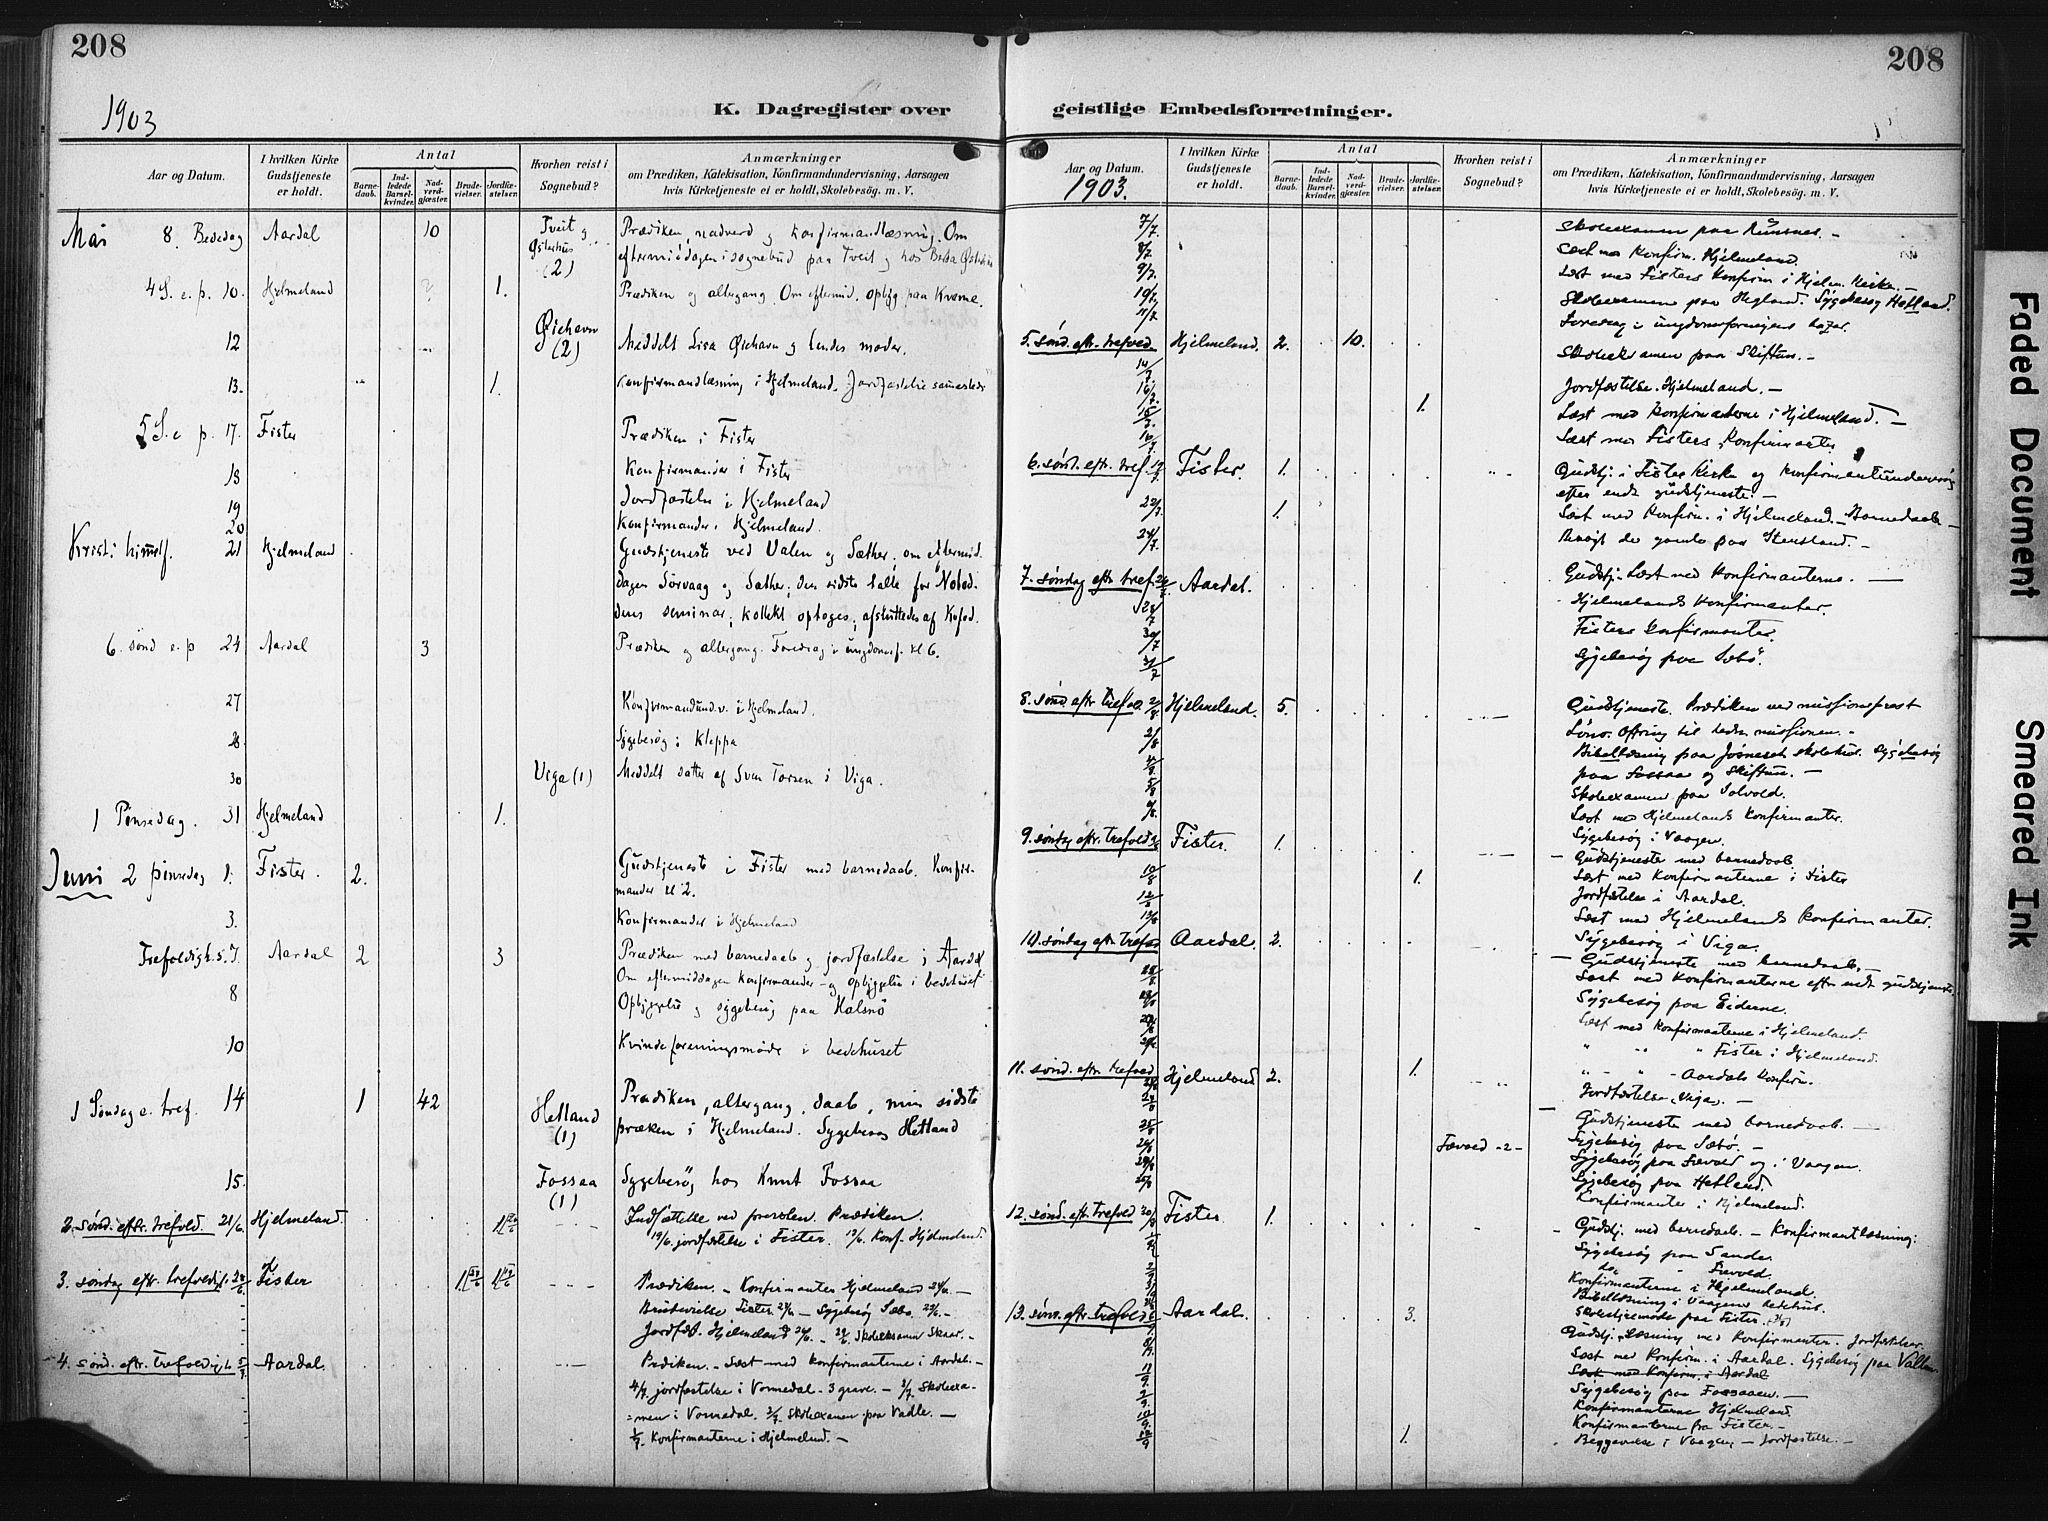 208
1903
K. Dagregister over
Aar og Datum.
I hvilken Kirke Gudstjeneste er holdt.
Antal
Barne-daab.
Ind-ledede Barsel-kvinder.
Nad-verd-gjæster.
Brude-vielser.
Jordfæ-stelser.
Hvorhen reist i Sognebud?
Anmærkninger
om Prædiken, Katekisation, Konfirmandundervisning, Aarsagen
hvis Kirketjeneste ei er holdt, Skolebesøg. m. V.
Mai 8. Bededag Aardal 10 Tveit og Østerhus (2) Prædiken, nadverd og konfirmandlæsning. Om
eftermiddagen i sognebud paa Tveit og hos
4 S. e. p. 10. Hjelmeland 1. Prædiken og altergang Om eftermid. opbyg. paa Kvame.
12 Øiehavn (2) Meddelt Lisa Øiehavn og hendes moder.
13. 1. Konfirmandlæsning i Hjelmeland. Jordfæstelse sammesteds
5 S. e p. 17. Fister Prædiken i Fister
18 Konfirmander i Fister
19 Jordfæstelse i Hjelmeland
20 Konfirmander i Hjelmeland.
Kristi himmelf. 21 Hjelmeland Gudstjeneste ved Valen og Sæther; om eftermid.
dagen Sørvaag og Sæther; den sidste talte for Notod-
dens seminar; kollekt optoges; afsluttedes af Kofod.
6. sønd e. p 24 Aardal 3 Prædiken og altergang. Foredrag i ungdomsf. kl 6.
27 Konfirmandund.v. i Hjelmeland.
28. Sygebesøg i Kleppa
30 Viga (1) Meddelt datter af Sven Torsen i Viga.
1 Pinsedag. 31 Hjelmeland 1.
Juni 2 pinsedag 1. Fister. 2. Gudstjeneste i Fister med barnedaab. Konfir-
mander kl 2.
3. Konfirmander i Hjelmeland
Trefoldigh.s. 7. Aardal 2 3 Prædiken med barnedaab og jordfæstelse i Aardal
Om eftermiddagen konfirmander og opbyggelse i bedehuset
8 Opbyggelse og sygebesøg paa Halsnø
10 Kvindeforeningsmøde i bedehuset
1 Søndag e. tref. 14 1 42 Hetland (1) Prædiken, altergang, daab, min sidste
præken i Hjelmeland. Sygebesøg Hetland
15. Fossaa (1) Sygebesøg hos Knut Fossaa
2. sønd. eftr. trefold. 21/6 Hjelmeland. Indsættelse ved provsten. Prædiken.
19/6. jordfæstelse i Fister. Konf. Hjelmeland.
3. søndag eftr. trefoldigh. 28/6 Fister Prædiken. – Konfirmanter Hjelmeland 24/6. –
Brudevielse Fister. – Sygebesøg Sæbø. –
Jordfæst. Hjelmeland – Skoleeksamen Skaar. –
4. sønd. eftr. trefoldigh. 5/7. Aardal. Prædiken. – Læst med konfirmanterne i Aardal. –
4/7. jordfæstelse i Vormedal – 3 grave. – Skoleexa-
=men i Vormedal. Skoleexamen paa Vadle. –
Konfirmanterne i Hjelmeland. –
208
geistlige Embedsforretninger.
Aar og Datum.
1903.
I hvilken Kirke Gudstjeneste er holdt.
Antal
Barne-daab.
Ind-ledede Barsel-kvinder.
Nad-verd-gjæster.
Brude-vielser.
Jordfæ-stelser.
Hvorhen reist i Sognebud?
Anmærkninger
om Prædiken, Katekisation, Konfirmandundervisning, Aarsagen
hvis Kirketjeneste ei er holdt, Skolebesøg. m. V.
7/7. Skoleexamen paa –
8/7 Læst med Konfirm. Hjelmeland.
9/7. Læst med Fisters Konfirm i Hjelm. Kirke. –
Skoleexamen paa Hegland. Sygebesøg Hetland.
Foredrag i ungdomsforeningens bazar.
5. sønd. eftr. trefold. Hjelmeland. 2. 10. Skoleeksamen paa Skiftun. –
Jordfæstelse. Hjelmeland. –
1. Læst med Konfirmanterne i Hjelmeland. –
Læst med Fisters Konfirmanter
6. sønd. eftr. tref. Fister. 1. Gudstj. i Fister Kirke og konfirmantundervisng
efter endt gudstjeneste. –
22/7 1. Læst med Konfirm. i Hjelmeland. – Barnedaab –
24/7. Besøgt de gamle paa Steinsland. –
7. søndag eftr. tref. Aardal. Gudstj. – Læst med Konfirmanterne. –
Hjelmelands Konfirmanter.
30/7 Fisters Konfirmanter.
Sygebesøg paa Sæbø.
8. sønd eftr trefold. 2/8. Hjelmeland. 5. Gudstjeneste. Prædiken ved missionsprest
Lønø. Ofring til hedn. missionen. –
Bibellæsning paa Jøsneset skolehus. Sygebesøg
paa Fossaa og Skiftun. –
Skoleexamen paa Solvold.
Læst med Hjelmelands Konfirmanter.
9. søndag eftr. trefold Fister. 1. Sygebesøg i Vaagen.
– Gudstjeneste med barnedaab
10/8 1. Læst med Konfirmanterne i Fister
Jordfæstelse i Aardal.
Læst med Hjelmelands konfirmanter.
10. søndag eftr. trefold Aardal. 2. Sygebesøg i Viga.
– Gudstjeneste med barnedaab. –
Læst med Konfirmanterne eftr endt gudstjeneste.
Sygebesøg paa Eiderne.
Læst med Konfirmanterne i Hjelmeland.
" " " Fister i Hjelmeland.
11. sønd. eftr. trefold Hjelmeland 2. 1. " - " - Aardals Konfirm.
Jordfæstelse, Viga. –
Gudstjeneste med barnedaab. –
Fævold -2- Sygebesøg paa Sæbø. –
Sygebesøg paa Fævold og i Vaagen.
Sygebesøg paa Hetland.
Konfirmanter i Hjelmeland.
12. sønd. eftr. trefold 30/8 Fister. 1. – Gudstj. med barnedaab. – Konfirmantlæsning.
Sygebesøg paa Sande.
do " Fævold.
Konfirmanterne i Hjelmeland.
Bibellæsning i Vaagens bedehus.
13. sønd. eftr trefold Aardal. 3. paa Fister.
Gudstj. Læsning med Konfirmanter. Jordfæstelser.
Læst med Konfirm. i Aardal. Sygebesøg paa
Læst med Konfirm. i Aardal
Sygebesøg paa Fossaaen. –
Konfirmanterne Hjelmeland.
Konfirmanterne fra Fister. –
1. i Vaagen – Jordfæstelse. –
Faded Document
Smeared Ink